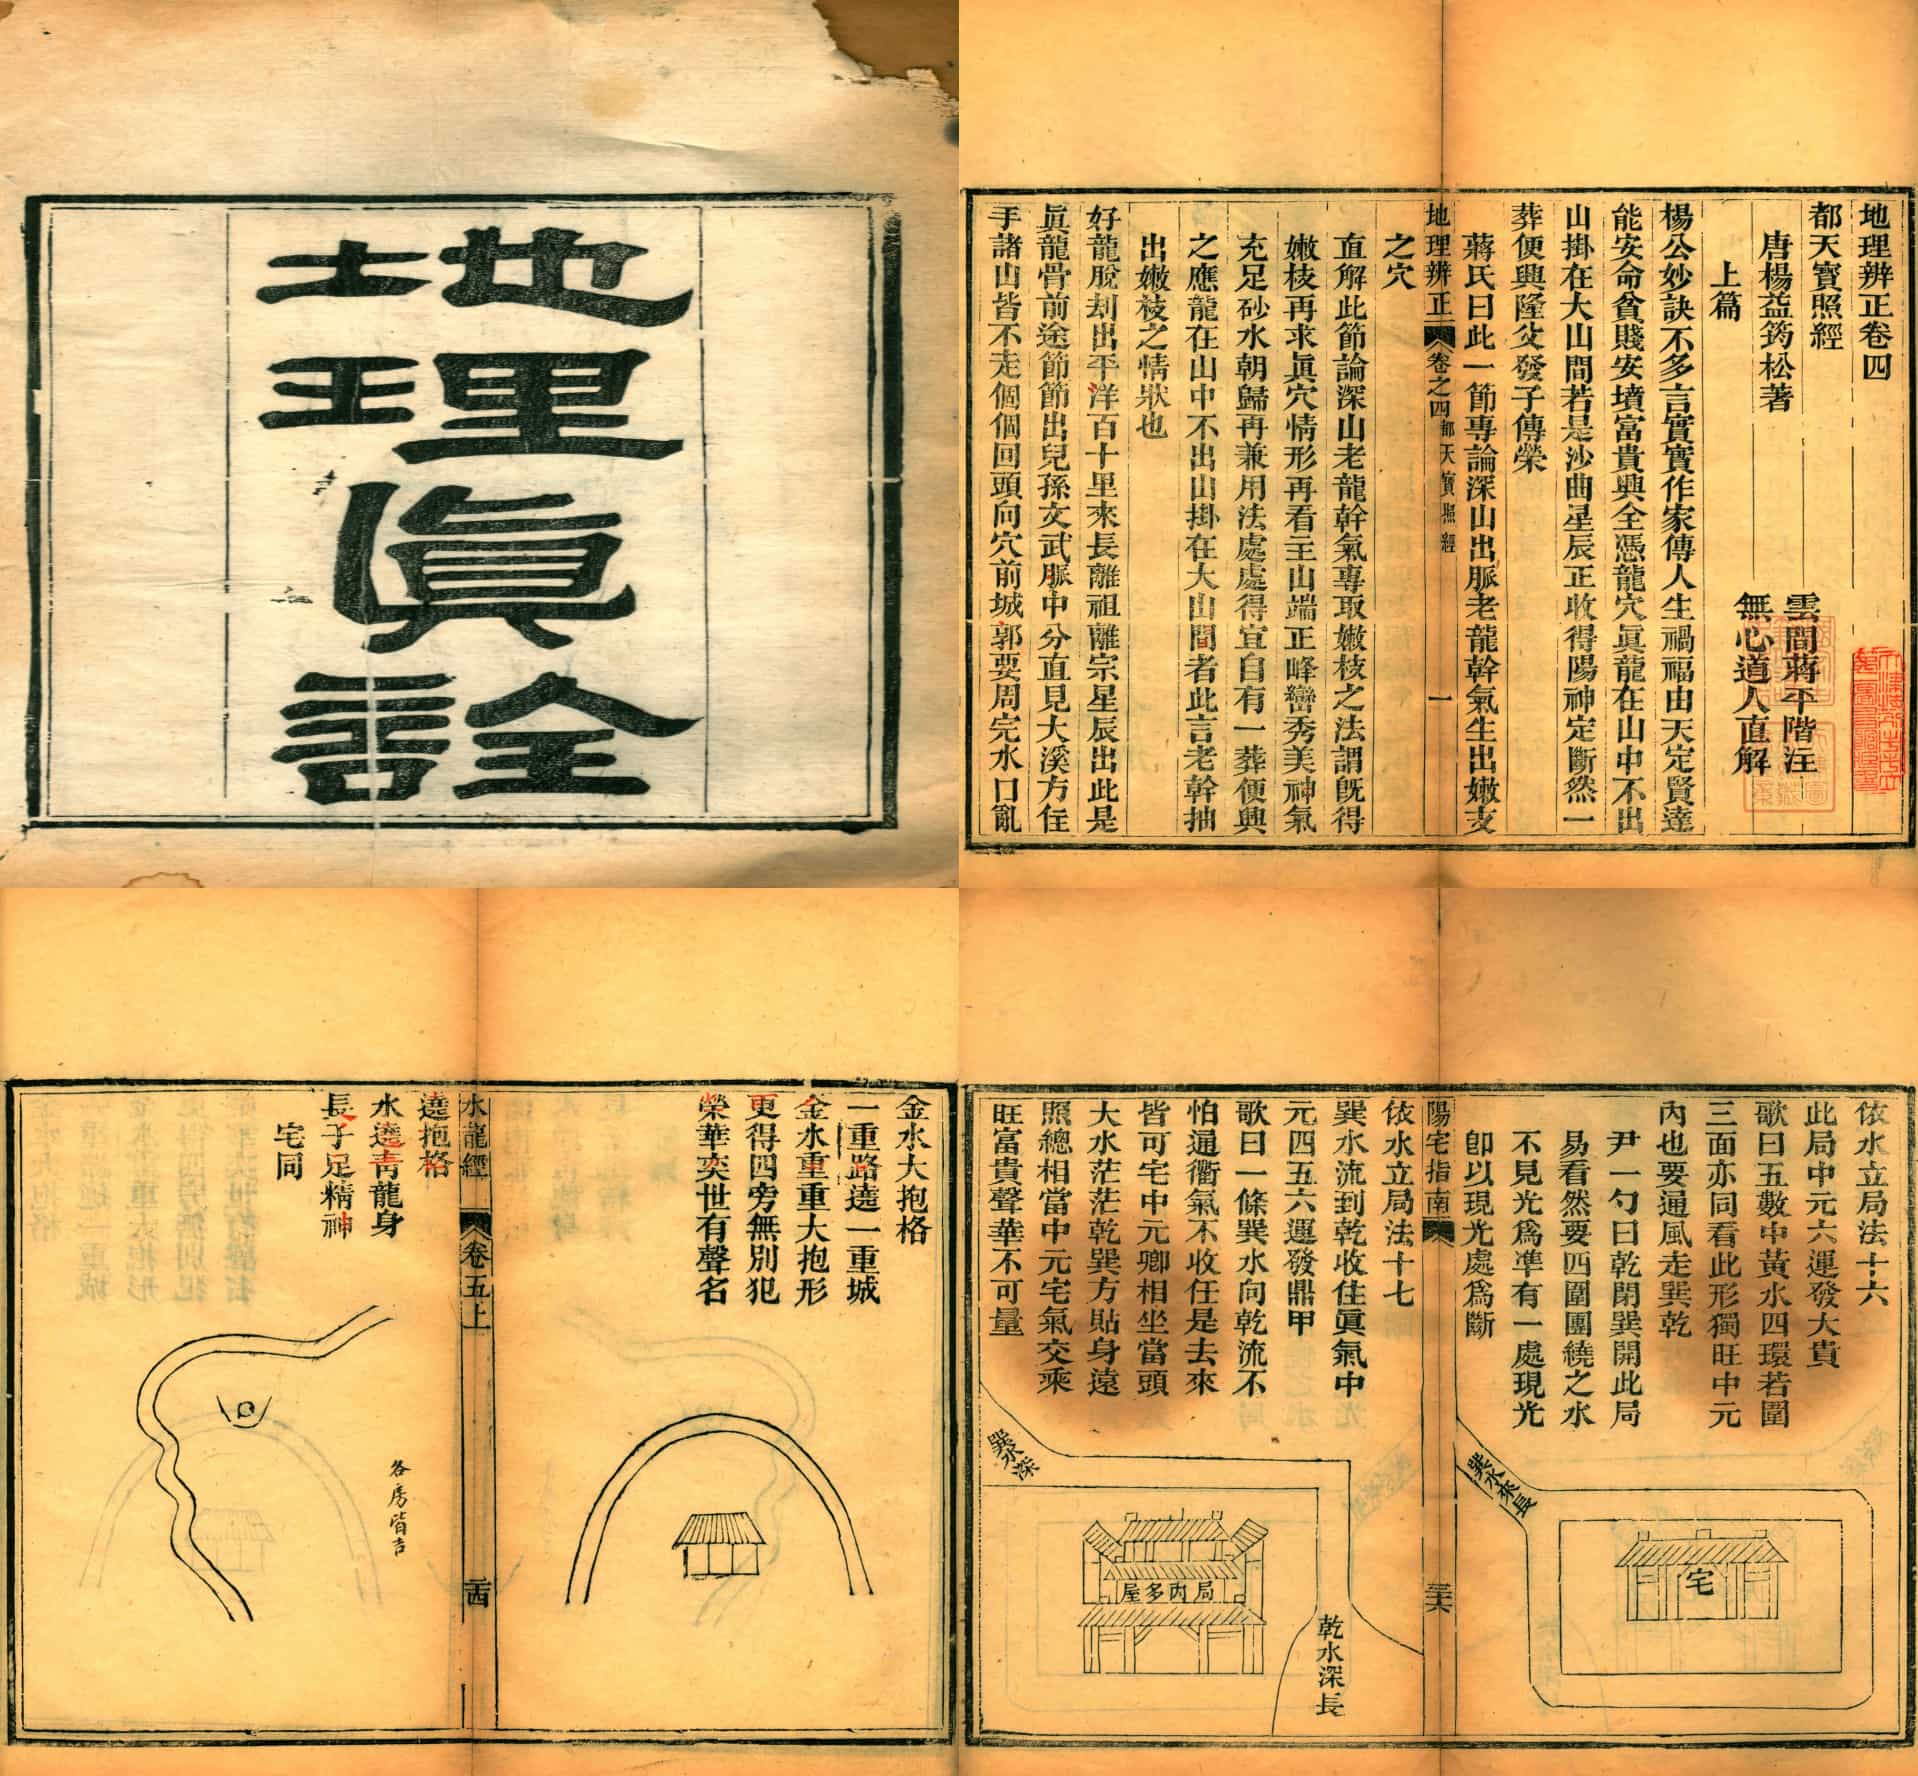 地理眞詮
地理辨正卷四
都天寶照經
唐楊益筠松著
雲間蔣平階注
無心道人直解
上篇
楊公妙訣不多言實實作家傳人生禍福由天定賢達
能安命貧賤安墳富貴興全憑龍穴眞龍在山中不出
山掛在大山間若是沙曲星辰正收得陽神定斷然一
葬便興隆父發子傳榮
蔣氏曰此一節專論深山出脈老龍幹氣生出嫩支
地理辨正
卷之四
都天寶照經
一
之穴
直解此節論深山老龍幹氣專取嫩枝之法謂旣得
嫩枝再求眞穴情形再看主山端正峰巒秀美神氣
充足砂水朝歸再兼用法處處得宜自有一葬便興
之應龍在山中不出山掛在大山間者此言老幹抽
出嫩枝之情狀也
好龍脫刦出平洋百十里來長離祖離宗星辰出此是
眞龍骨前途節節出兒孫文武脈中分直見大溪方住
手諸山皆不走個個回頭向穴前城郭要周完水口亂
金水大抱格
一重路遶一重城
金水重重大抱形
更得四旁無別犯
榮華奕世有聲名
水龍經
卷五上
遶抱格
水遶靑龍身
長子足精神
宅同
各房皆吉
依水立局法十六
此局中元六運發大貴
歌曰五數中黃水四環若圍
三面亦同看此形獨旺中元
內也要通風走巽乾
尹一勺曰乾閉巽開此局
易看然要四圍團繞之水
不見光爲準有一處現光
卽以現光處爲斷
巽水來長
宅
陽宅指南
依水立局法十七
巽水流到乾收住眞氣中
元四五六運發鼎甲
歌曰一條巽水向乾流不
怕通衢氣不收任是去來
皆可宅中元卿相坐當頭
大水茫茫乾巽方貼身遠
照總相當中元宅氣交乘
旺富貴聲華不可量
巽水深
局內多屋
乾水深長